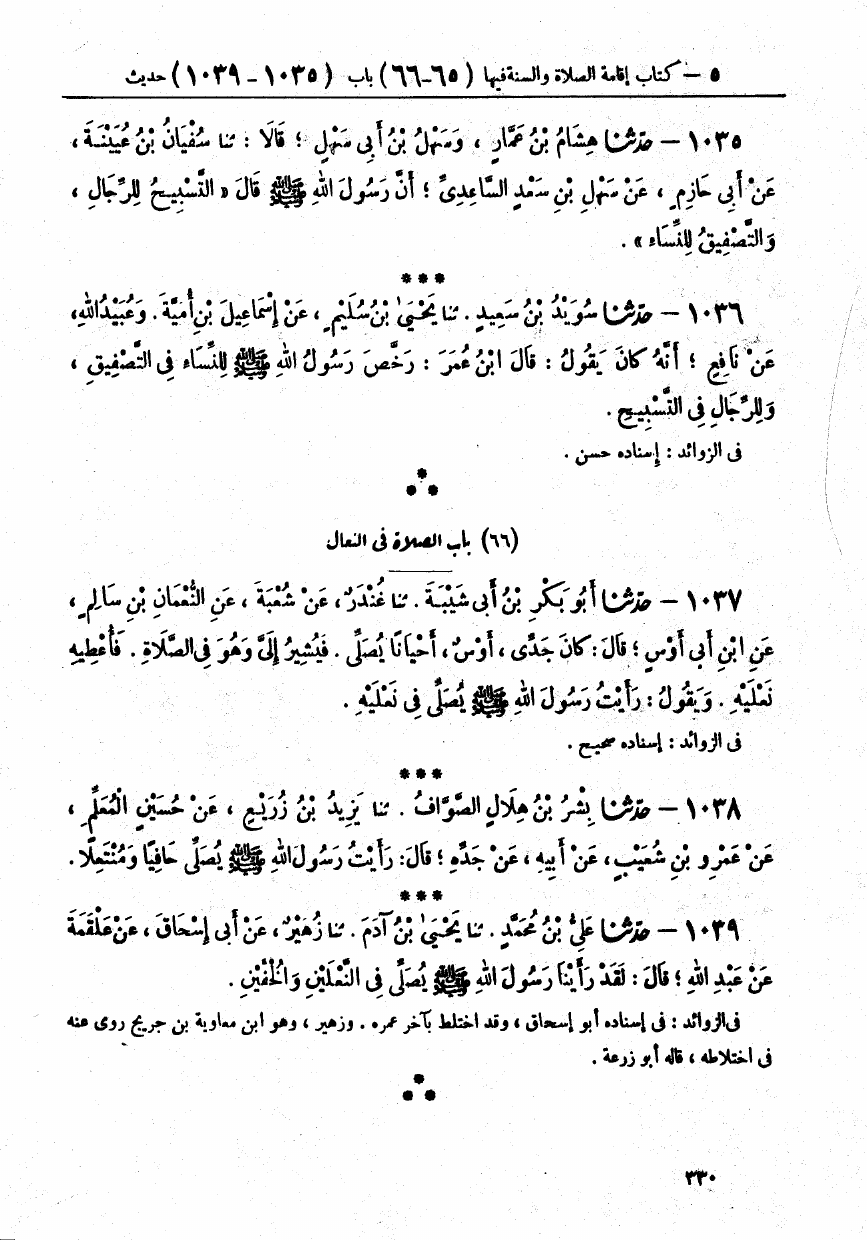 ٥ – كتاب إقامة الصلاة والسنة فيها (٦٥-٦٦) باب (١٠٣٥ - ١٠٣٩) حديث
١٠٣٥ – حَدَّثَنَا هِشَامُ بْنُ عَمَّارٍ ، وَسَهْلُ بْنُ أَبِي سَهْلٍ ؛ قَالَا : ثنا سُفْيَانُ بْنُ عُيَيْنَةَ ،
عَنْ أَبِي حَازِمٍ ، عَنْ سَهْلِ بْنِ سَعْدٍ السَّاعِدِىِّ ؛ أَنَّ رَسُولَ اللهِ ﷺ قَالَ « التَّسْبِيحُ لِلرِّجَالِ ،
وَالتَّصْفِيقُ لِلنِّسَاء » .
***
١٠٣٦ – حَدَّثَنَا سُوَيْدُ بْنُ سَعِيدٍ . ثنا يَحْيَىٰ بْنُ سُلَيْمٍ ، عَنْ إِسْمَاعِيلَ بْنِ أُمَيَّةَ . وَعُبَيْدُاللهِ،
عَنْ نَافِعٍ ؛ أَنَّهُ كَانَ يَقُولُ : قَالَ ابْنُ عُمَرَ : رَخَّصَ رَسُولُ اللهِ ﷺ لِلنِّسَاء فِى التَّصْفِيقِ ،
وَلِلرِّجَالِ فِى التَّسْبِيحِ .
فى الزوائد : إسناده حسن .
***
(٦٦) باب الصلاة فى النعال
١٠٣٧ – حَدَّثَنَا أَبُو بَكْرِ بْنُ أَبِى شَيْبَةَ . ثنا غُنْدَرٌ ، عَنْ شُعْبَةَ ، عَنِ النُّعْمَانِ بْنِ سَالِمٍ ،
عَنِ ابْنِ أَبِى أَوْسٍ ؛ قَالَ : كَانَ جَدِّى ، أَوْسٌ ، أَحْيَانًا يُصَلِّى . فَيُشِيرُ إِلَىَّ وَهُوَ فِى الصَّلَاةِ . فَأُعْطِيهِ
نَعْلَيْهِ . وَيَقُولُ : رَأَيْتُ رَسُولَ اللهِ ﷺ يُصَلِّى فِى نَعْلَيْهِ .
فى الزوائد : إسناده صحيح .
***
١٠٣٨ – حَدَّثَنَا بِشْرُ بْنُ هِلَالٍ الصَّوَّافُ . ثنا يَزِيدُ بْنُ زُرَيْعٍ ، عَنْ حُسَيْنٍ الْمُعَلِّمِ ،
عَنْ عَمْرِو بْنِ شُعَيْبٍ ، عَنْ أَبِيهِ ، عَنْ جَدِّهِ ؛ قَالَ : رَأَيْتُ رَسُولَ اللهِ ﷺ يُصَلِّى حَافِيًا وَمُنْتَعِلًا .
***
١٠٣٩ – حَدَّثَنَا عَلِىُّ بْنُ مُحَمَّدٍ . ثنا يَحْيَىٰ بْنُ آدَمَ . ثنا زُهَيْرٌ ، عَنْ أَبِى إِسْحَاقَ ، عَنْ عَلْقَمَةَ
عَنْ عَبْدِ اللهِ ؛ قَالَ : لَقَدْ رَأَيْنَا رَسُولَ اللهِ ﷺ يُصَلِّى فِى النَّعْلَيْنِ وَالْخُفَّيْنِ .
فى الزوائد : فى إسناده أبو إسحاق ، وقد اختلط بآخر عمره . وزهير ، وهو ابن معاوية بن جريج روى عنه
فى اختلاطه ، قاله أبو زرعة .
***
٣٣٠